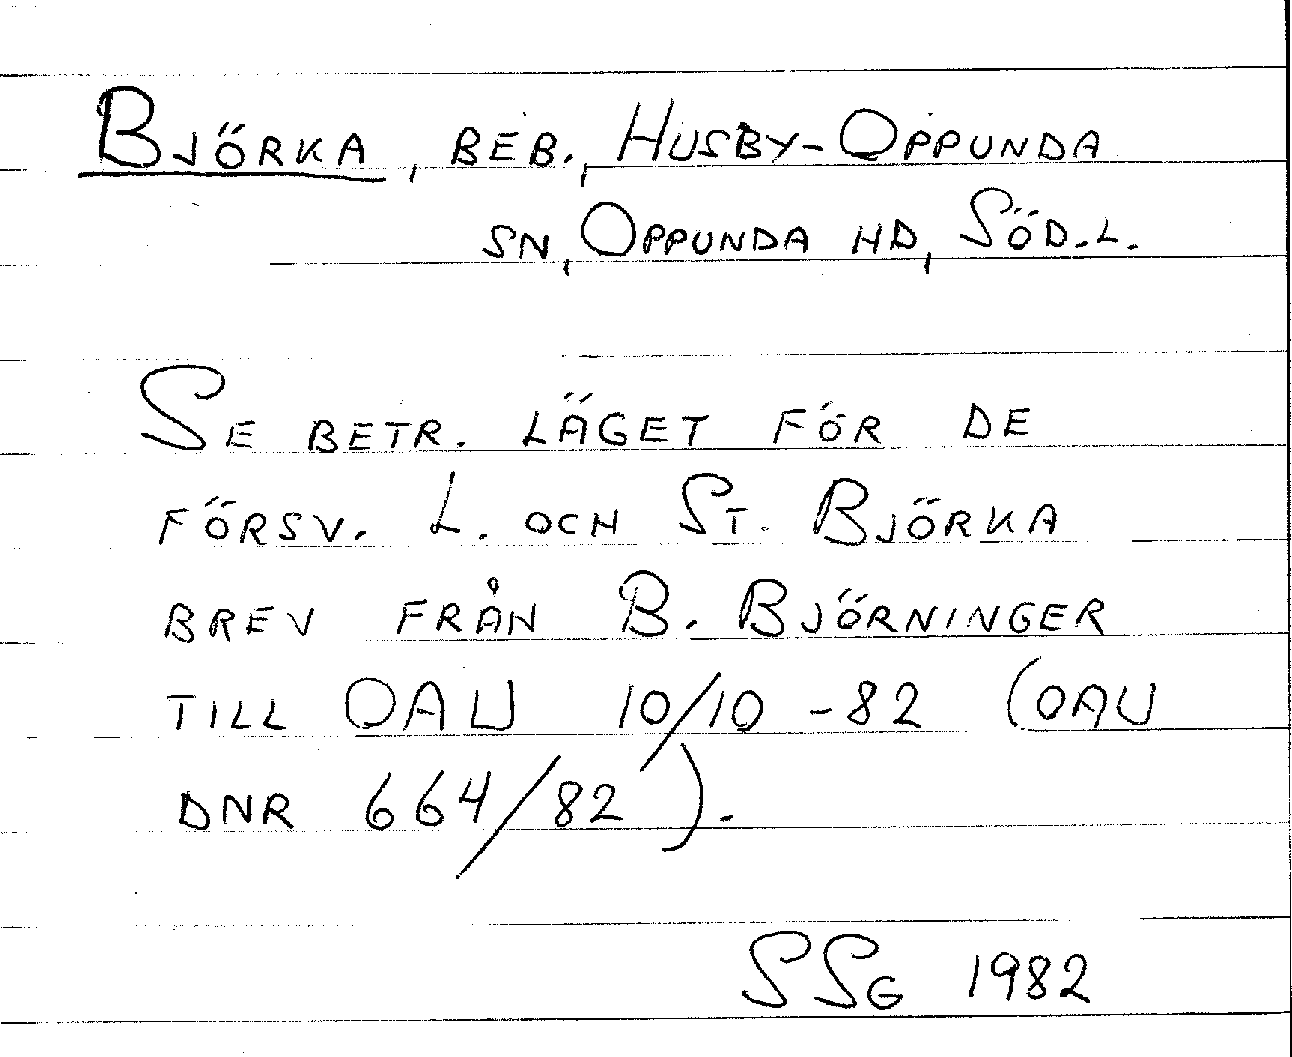 Björka, beb., Husby-Oppunda
sn, Oppunda hd, Söd.l.
Se betr. läget för de
försv. L. och St. Björka
brev från B. Björninger
till OAU 10/10 -82 (OAU
dnr 664/82).
SSg 1982